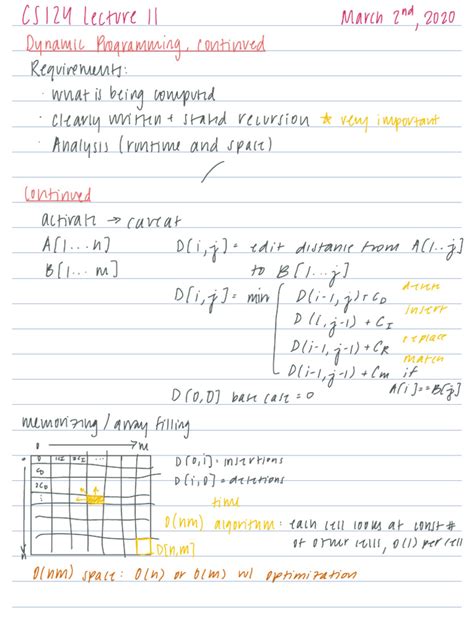 CS124 Lecture 11 March 2nd, 2020
Dynamic Programming, continued
Requirements:
· what is being computed
· clearly written + stated recursion ★ very important
· Analysis (runtime and space)
Continued
activate → caveat
A[1...n] D[i,j] = edit distance from A[1..j]
B[1...m] to B[1...j]
delete
D[i,j] = min { D(i-1, j) + CD
insert
D(i, j-1) + CI
replace
D(i-1, j-1) + CR
match
D(i-1, j-1) + Cm if
A[i]==B[j]
D[0,0] base case = 0
memorizing / array filling
0 → m
0 CI 2CI ...
CD
2CD
i
n
D[n,m]
D[0,i]: insertions
D[i,0]: deletions
time
O(nm) algorithm: each cell looks at const #
of other cells, O(1) per cell
O(nm) space: O(n) or O(m) w/ optimization